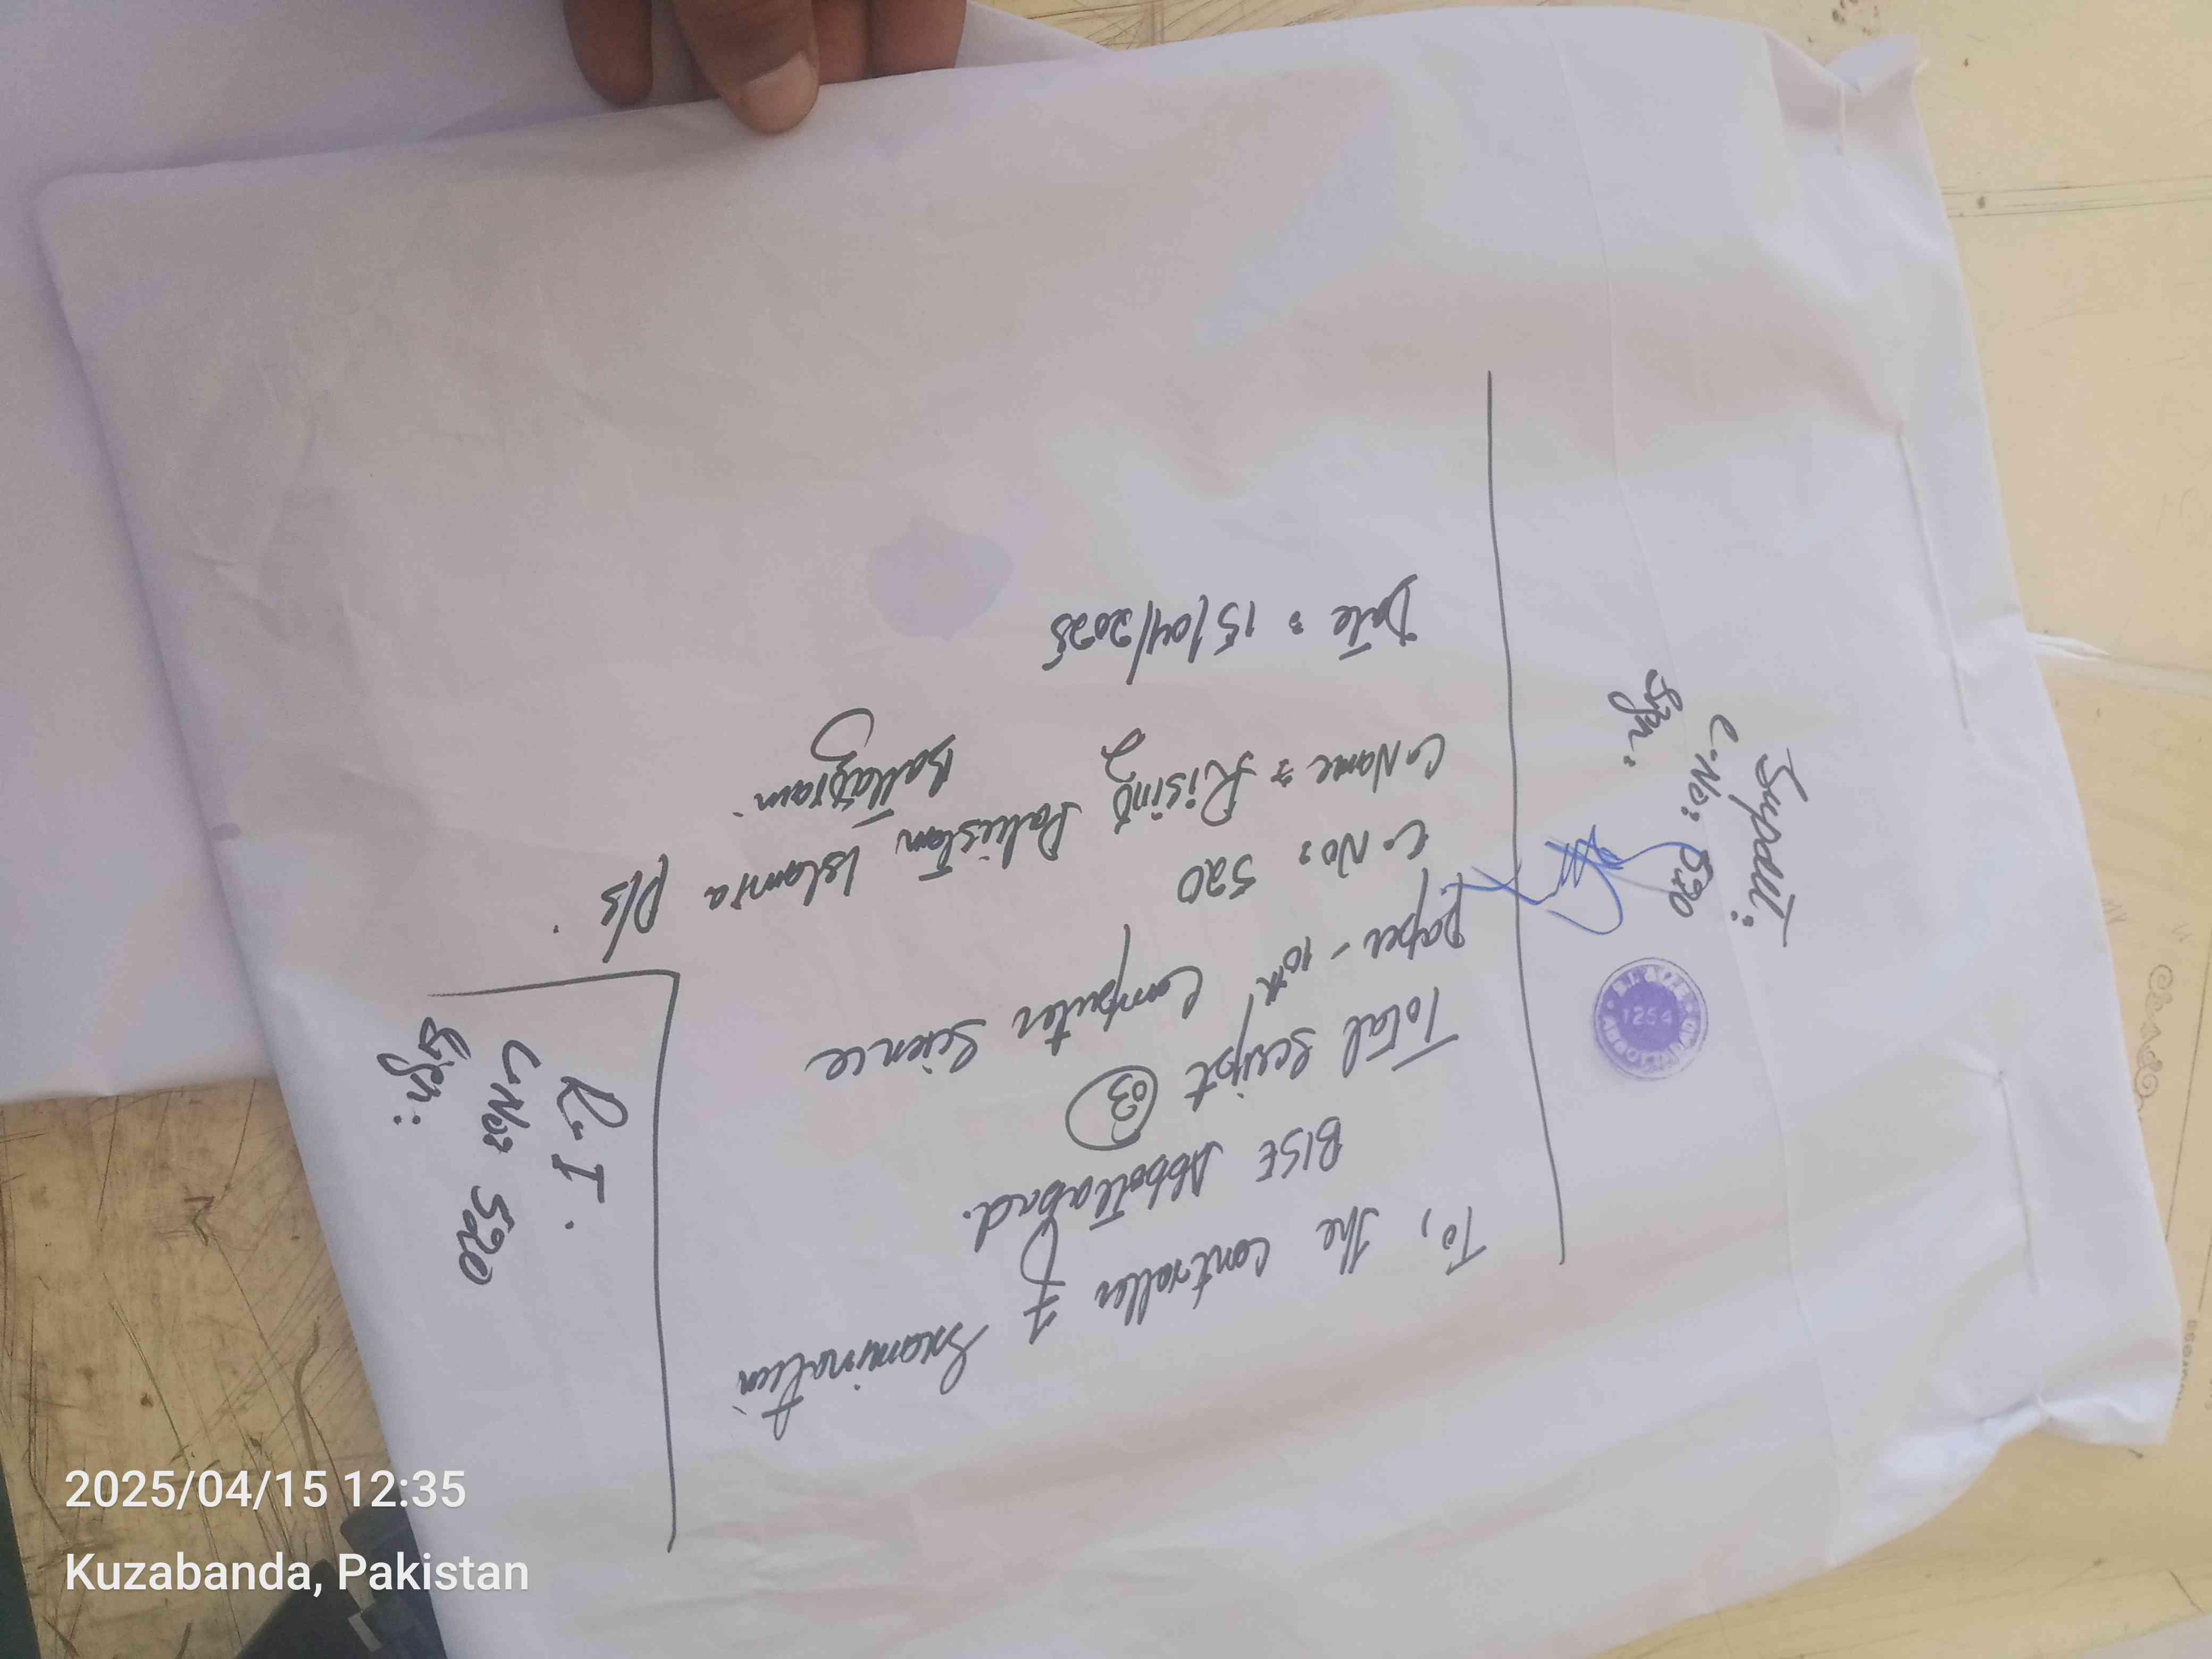 To, the Controller of Examination
BISE Abbottabad.
Total Script 03
Paper - 10th Computer Science
C.No: 520
C.Name: Rising Pakistan Islamia P/S
Battagram
Date: 15/04/2025
Supdtt:
C-No: 520
Sign:
1254
ABBOTTABAD
R.I.
C-No: 520
Sign:
2025/04/15 12:35
Kuzabanda, Pakistan